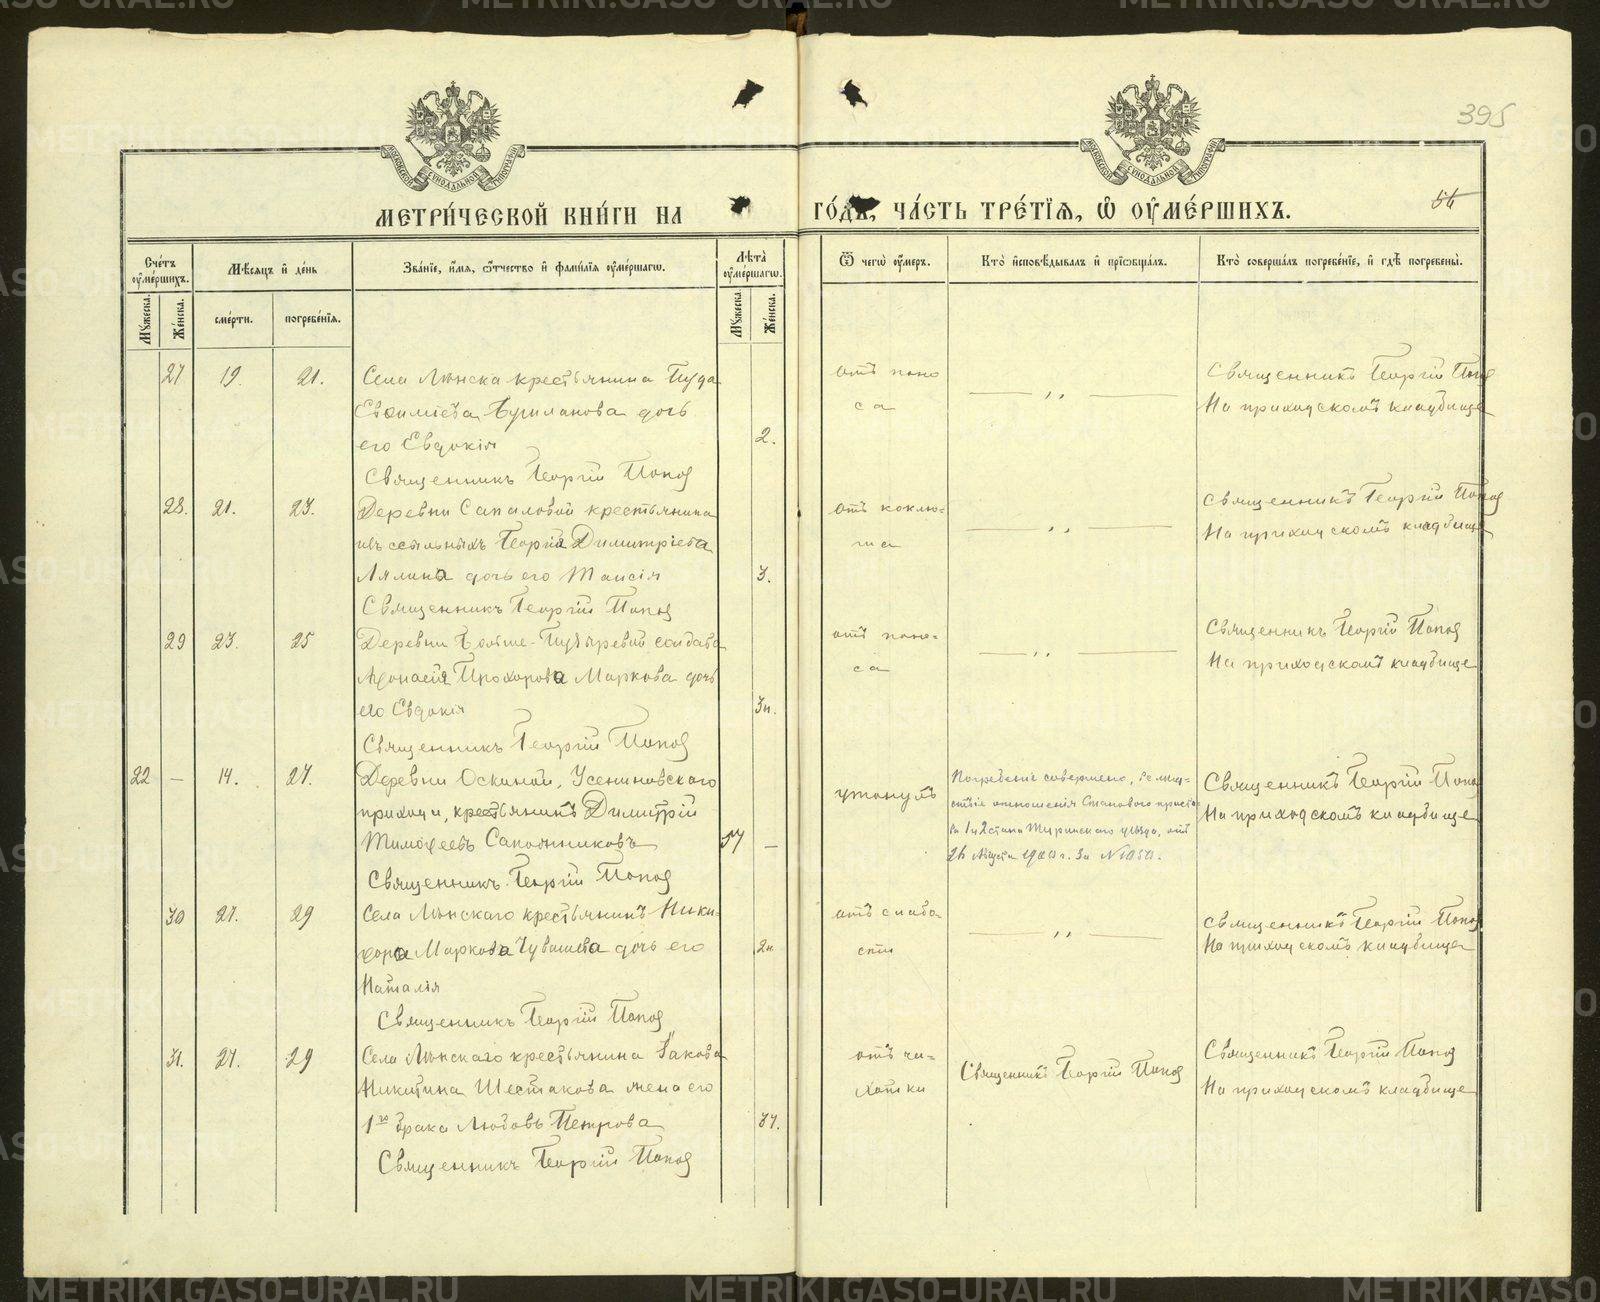 395
МЕТРИ́ЧЕСКОЙ КНИ́ГИ НА ГО́ДЪ, ЧА́СТЬ ТРЕ́ТЇѦ, Ѡ҆ ОУ҆МЕ́РШИХЪ.
Сче́тъ оу҆ме́ршихъ.
Мꙋ́жеска.
Же́нска.
Мѣ́сѧцъ и҆ де́нь
сме́рти.
погребе́нїѧ.
Зва́нїе, и҆́мѧ, ѻ҆́тчество и҆ фами́лїѧ оу҆ме́ршагѡ.
Лѣ́та оу҆ме́ршагѡ.
Мꙋ́жеска.
Же́нска.
Ѿ чегѡ̀ оу҆́меръ.
Кто̀ и҆сповѣ́дывалъ и҆ прїѡбща́лъ.
Кто̀ соверша́лъ погребе́нїе, и҆ гдѣ̀ погребены̀.
27 19. 21. Села крестьянина Пуда
Евѳиміева дочь
его Евдокія 2.
Священникъ Георгій Попов
отъ поно
са
Священникъ Георгій Попов
На приходскомъ кладбище
28. 21. 23. Деревни Сапаловой крестьянина
изъ ссыльныхъ Георгія Димитріева
Лялина дочь его Таисія 3.
Священникъ Георгій Попов
отъ коклю-
ша
Священникъ Георгій Попов
На приходскомъ кладбище
29 23. 25 Деревни солдата
Афонасія Прохорова Маркова дочь
его Евдокія 3н.
Священникъ Георгій Попов
отъ поно-
са
Священникъ Георгій Попов
На приходскомъ кладбище
22 — 14. 27. Деревни Оскиной, Усениновскаго
прихода, крестьянинъ Димитрій
Тимофеевъ Сапожниковъ 57 —
Священникъ Георгій Попов
утонулъ
Погребеніе совершено, вслед-
ствіе отношенія Станового приста-
ва 1 и 2 стана Туринскаго уѣзда, отъ
26 Августа 190 г. за № 1050.
Священникъ Георгій Попов
На приходскомъ кладбище
30 27. 29 Села крестьянинъ Ники-
фора Маркова Чувашева дочь его 2н
Наталія
Священникъ Георгій Попов
отъ слабо
сти
Священникъ Георгій Попов
На приходскомъ кладбище
31. 27. 29 Села крестьянина Іакова
Никитина Шестакова жена его
1го брака Любовь Петрова 37.
Священникъ Георгій Попов
отъ ча-
хотки
Священникъ Георгій Попов
Священникъ Георгій Попов
На приходскомъ кладбище
METRIKI.GASO-URAL.RU